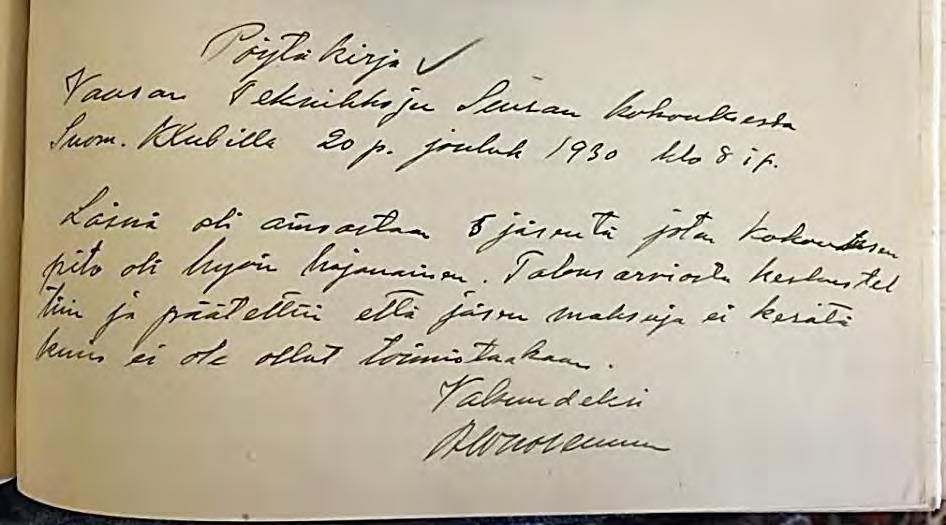 Pöytäkirja ✓
Vaasan Teknikkoju Seuran kokouksesta
Suom. Klubilla 20 p. jouluk 1930 klo 8 i p.
Läsnä oli ainoastaan 5 jäsentä joten kokouksen
pito oli hyvin hajanainen. Talousarviosta keskustel
tiin ja päätettiin että jäsen maksuja ei kerätä
kuin ei ole ollut toimintaakaan.
Vakuudeksi